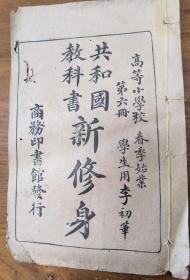 高等小學校 春季始業
第六冊 學生用 李初華
共和國
教科書
新修身
商務印書館發行